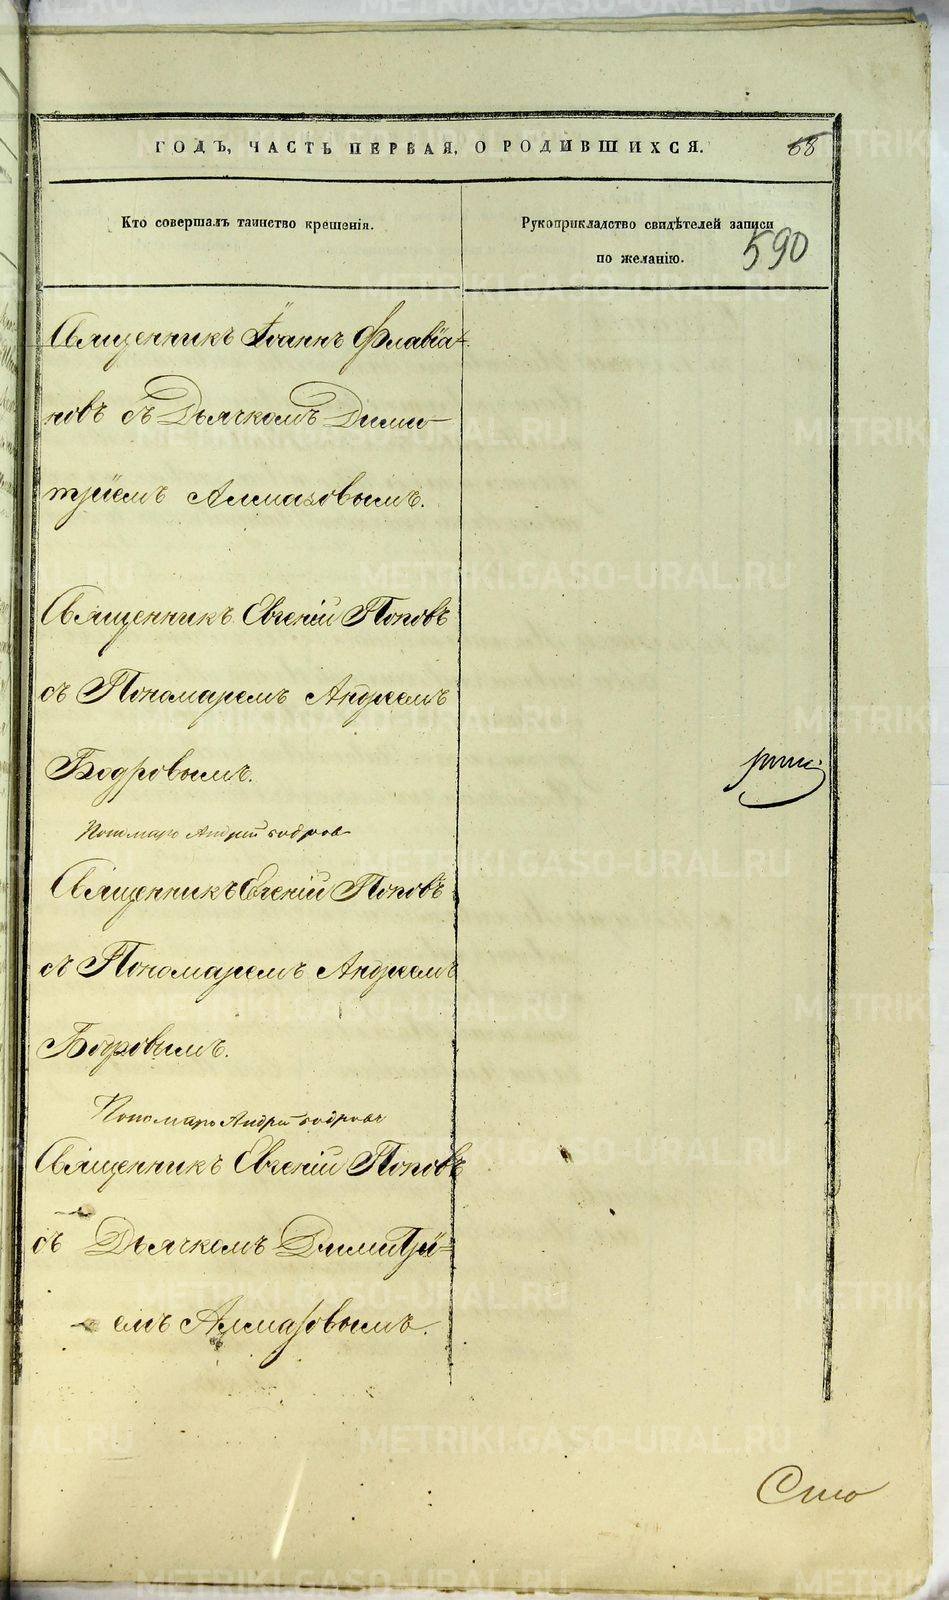 ГОДЪ, ЧАСТЬ ПЕРВАЯ, О РОДИВШИХСЯ.
68
Кто совершалъ таинство крещенія.
Рукоприкладство свидѣтелей записи
по желанію.
590
Священникъ Іоаннъ Флавіа-
новъ съ Дьячкомъ Дими-
тріемъ Алмазовымъ.
Священникъ Евгеній Поповъ
съ Пономаремъ Андреемъ
Бодровымъ.
Пономарь Андрей Бодровъ
Священникъ Евгеній Поповъ
съ Пономаремъ Андреемъ
Бодровымъ.
Пономарь Андрей Бодровъ
Священникъ Евгеній Поповъ
съ Дьячкомъ Димитрі-
емъ Алмазовымъ.
METRIKI.GASO-URAL.RU